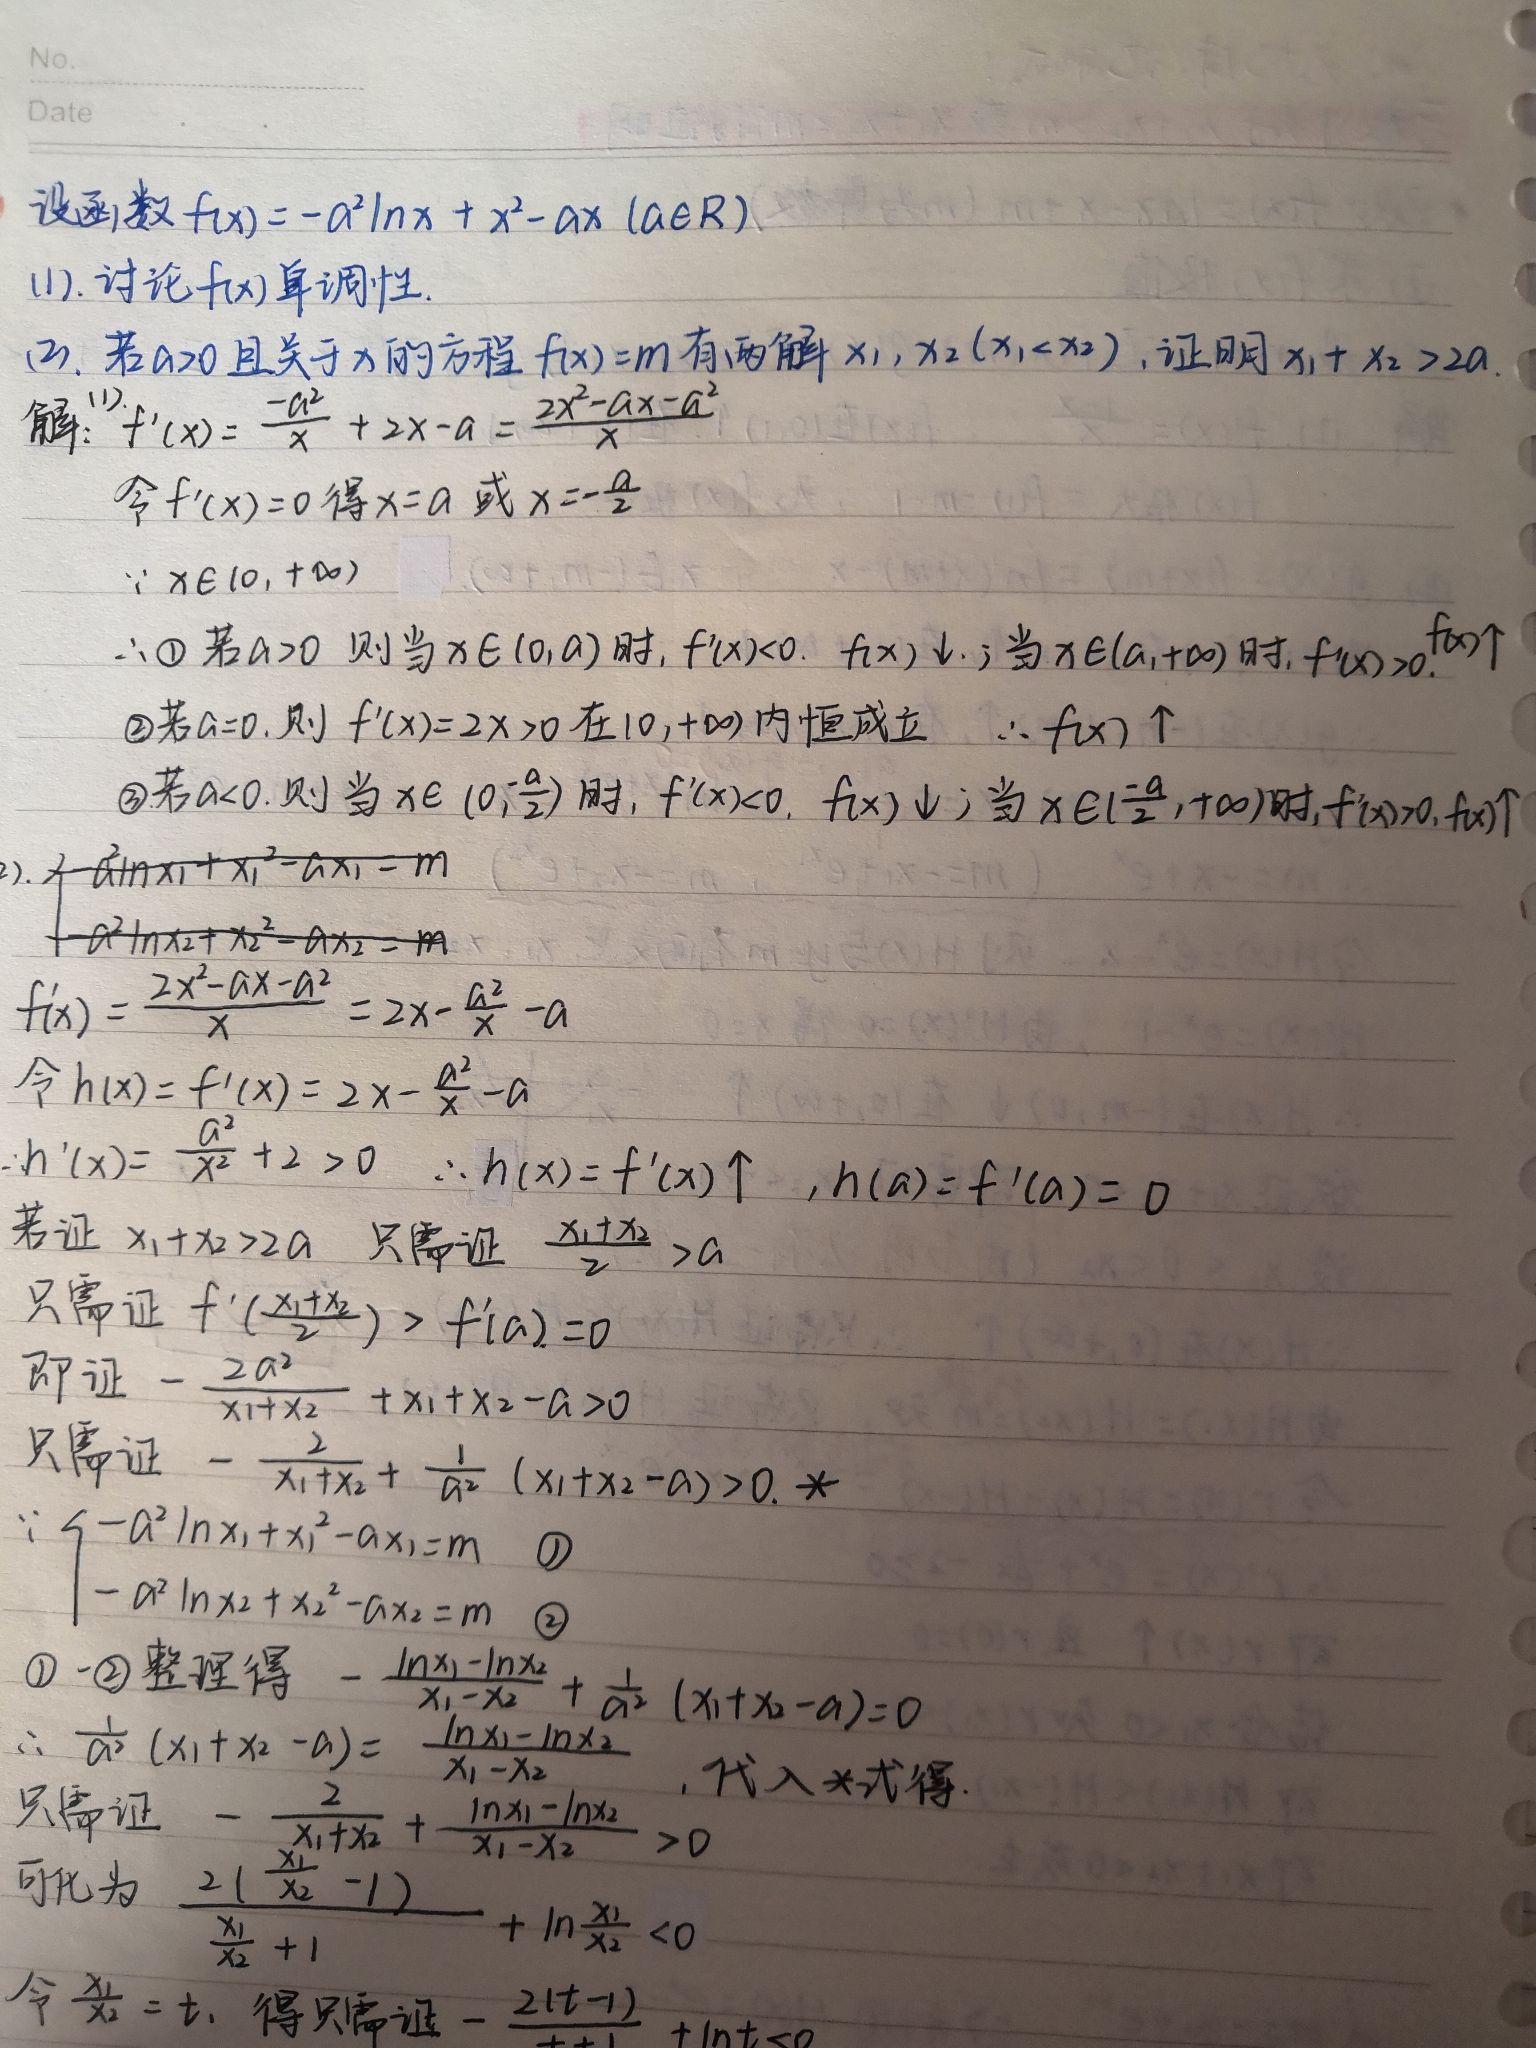 No.
Date
设函数 f(x) = -a²lnx + x² - ax (a∈R)
(1). 讨论 f(x) 单调性.
(2). 若a>0 且关于x的方程 f(x)=m 有两解 x₁, x₂ (x₁<x₂), 证明 x₁+x₂>2a.
解: (1). f'(x) = -a²/x + 2x - a = (2x²-ax-a²)/x
令 f'(x)=0 得 x=a 或 x=-a/2
∵ x∈(0,+∞)
∴① 若a>0 则当 x∈(0,a) 时, f'(x)<0. f(x)↓.; 当 x∈(a,+∞) 时, f'(x)>0. f(x)↑
②若a=0. 则 f'(x)=2x>0 在(0,+∞)内恒成立 ∴ f(x)↑
③若a<0. 则当 x∈(0,-a/2) 时, f'(x)<0, f(x)↓; 当 x∈(-a/2,+∞)时, f'(x)>0, f(x)↑
2). { -a²lnx₁+x₁²-ax₁=m
-a²lnx₂+x₂²-ax₂=m
f'(x) = (2x²-ax-a²)/x = 2x - a²/x - a
令 h(x) = f'(x) = 2x - a²/x - a
∴h'(x) = a²/x² + 2 > 0 ∴ h(x)=f'(x)↑, h(a)=f'(a)=0
若证 x₁+x₂>2a 只需证 (x₁+x₂)/2 > a
只需证 f'((x₁+x₂)/2) > f'(a)=0
即证 - 2a²/(x₁+x₂) + x₁+x₂-a>0
只需证 - 2/(x₁+x₂) + 1/a² (x₁+x₂-a)>0. *
∵ { -a²lnx₁+x₁²-ax₁=m ①
-a²lnx₂+x₂²-ax₂=m ②
①-②整理得 - (lnx₁-lnx₂)/(x₁-x₂) + 1/a² (x₁+x₂-a)=0
∴ 1/a² (x₁+x₂-a) = (lnx₁-lnx₂)/(x₁-x₂), 代入*式得.
只需证 - 2/(x₁+x₂) + (lnx₁-lnx₂)/(x₁-x₂) > 0
可化为 2(x₁/x₂ -1)/(x₁/x₂ +1) + ln x₁/x₂ <0
令 x₁/x₂ = t, 得只需证 - 2(t-1)/(t+1) + lnt<0